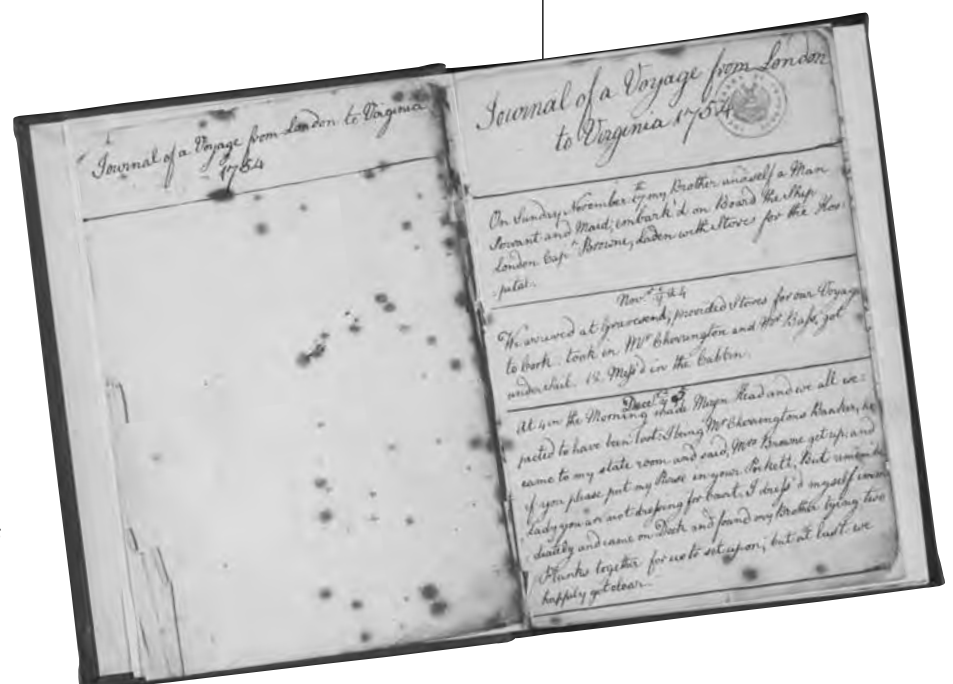 Journal of a Voyage from London to Virginia
1754
Journal of a Voyage from London
to Virginia 1754
On Sunday November ye 17 my Brother and self a Man
Servant and Maid; embark'd on Board the Ship
London Capn Browne, laden with Stores for the Hos:
pital.
Novr ye 24
We arrived at Gravesend, provided Stores for our Voyage
to Cork. took in Mr Cherrington and Mr Bass, got
under sail. 12 Mess'd in the Cabbin.
Decr ye 5
At 4 in the Morning made Mayn Head and we all ex:
pected to have been lost. I being Mr Cherringtons Banker, he
came to my state room and said, Mrs Browne get up; and
if you please put my Purse in your Pockett, But remember
Lady you are not dressing for Court. I dress'd myself imme
diately and came on Deck and found my Brother tying two
Planks together for us to set upon; but at last we
happily got clear.